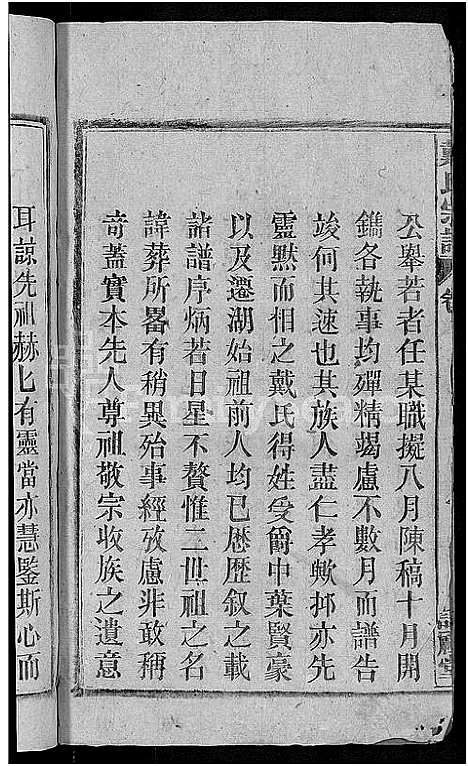 戴氏宗譜
卷
公舉若者任某職擬八月陳稿十月開
鐫各執事均殫精竭慮不數月而譜告
竣何其速也其族人盡仁孝歟抑亦先
靈默而相之戴氏得姓受爵中葉賢豪
以及遷湖始祖前人均已歷歷叙之載
諸譜序炳若日星不贅惟三世祖之名
諱葬所畧有稍異殆事經攷慮非敢稱
竒蓋實本先人尊祖敬宗收族之遺意
耳諒先祖赫匕有靈當亦慧鑒斯心而